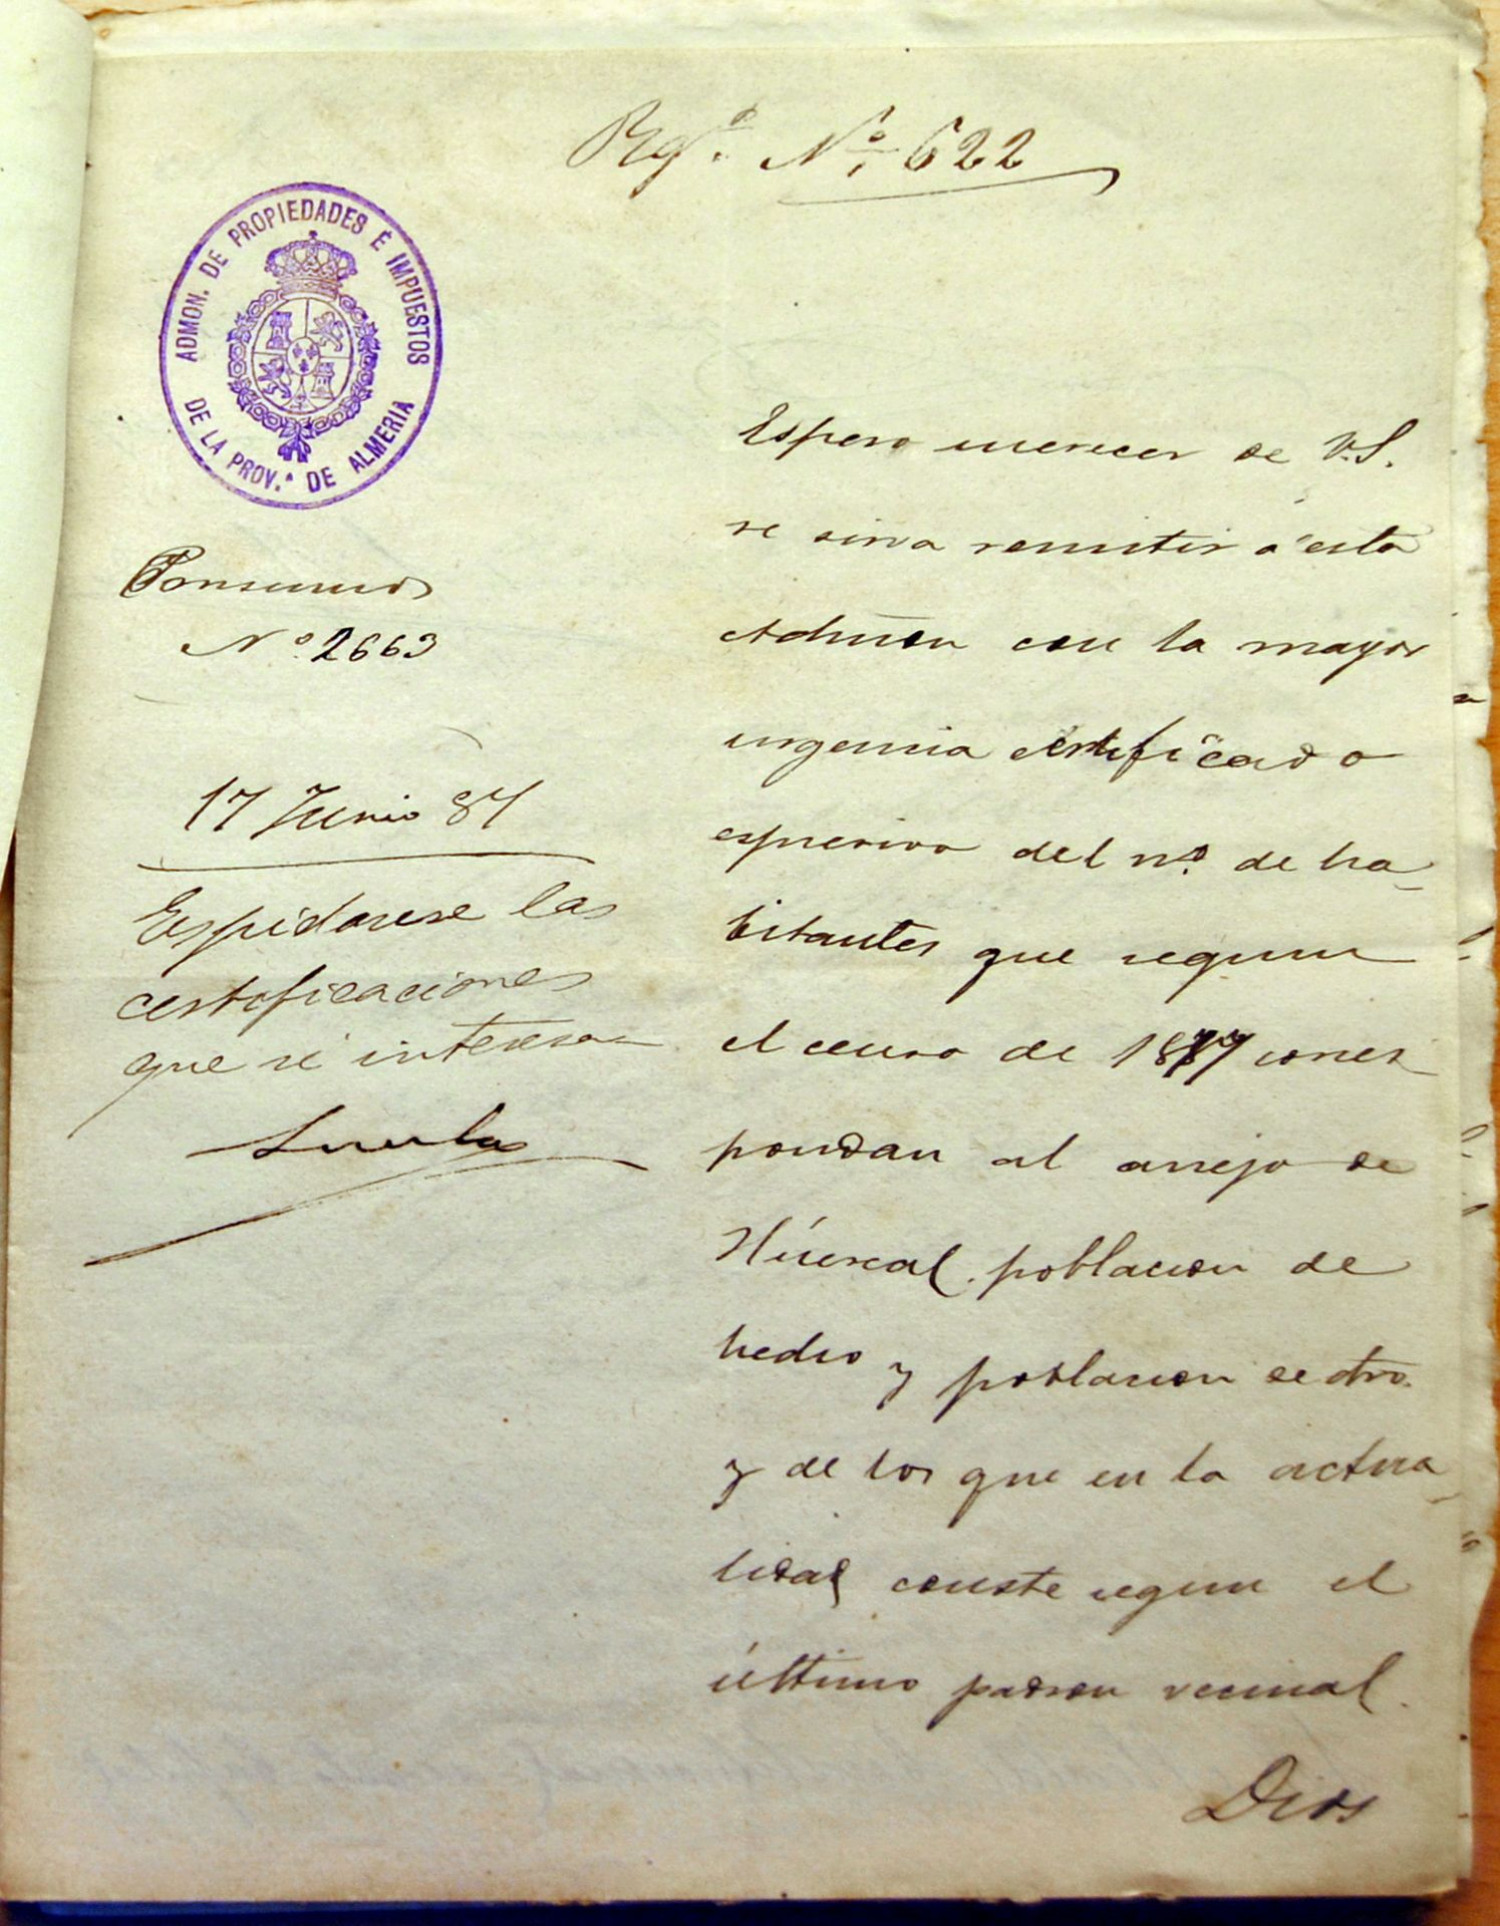 Rgº. Nº. 622
ADMON. DE PROPIEDADES É IMPUESTOS
DE LA PROV.ª DE ALMERIA
Consumos
Nº 2663
17 Junio 87
Espidanse las
certificaciones
que se interesan
Espero merecer de V.S.
se sirva remitir á esta
Admon con la mayor
urgencia certificado
espresivo del nº. de ha-
bitantes que segun
el censo de 1877 corres
pondan al anejo de
Húercal poblacion de
hecho y poblacion de dro.
y de los que en la actua-
lidad conste segun el
último padron vecinal.
Dios